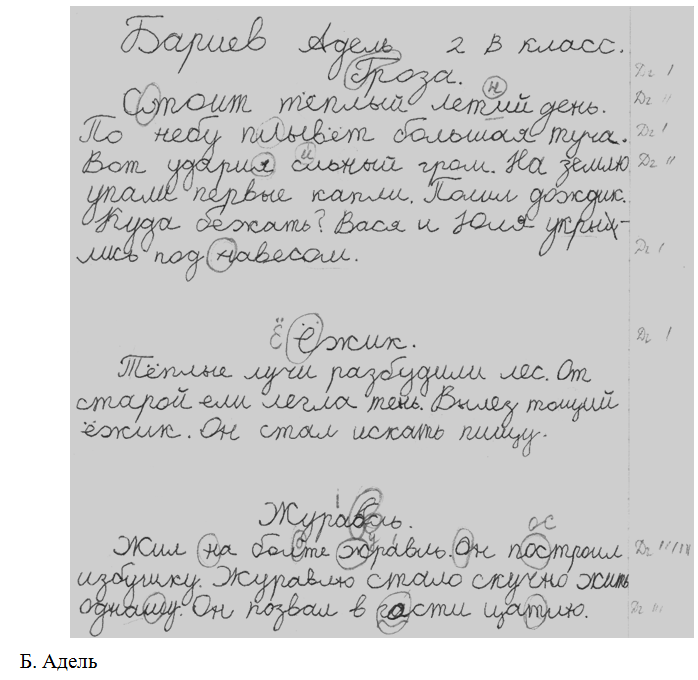 Бариев Адель 2 В класс.
Гроза. Дг I
н
Стоит тёплый летий день. Дг II
По небу плывёт большая туча. Дг I
и
Вот удария сльный гром. На землю Дг II
упали первые капли. Полил дождик.
Куда бежать? Вася и Юля укры-
лись под навесом. Дг I
Ё Ёжик. Дг I
Тёплые лучи разбудили лес. От
старой ели легла тень. Вылез тощий
ёжик. Он стал искать пищу.
Жураоль.
ос
Жил на болте жравль. Он построил Дг
избушку. Журавлю стало скучно жить
однашу. Он позвал в гости щатлю. Дг III
Б. Адель